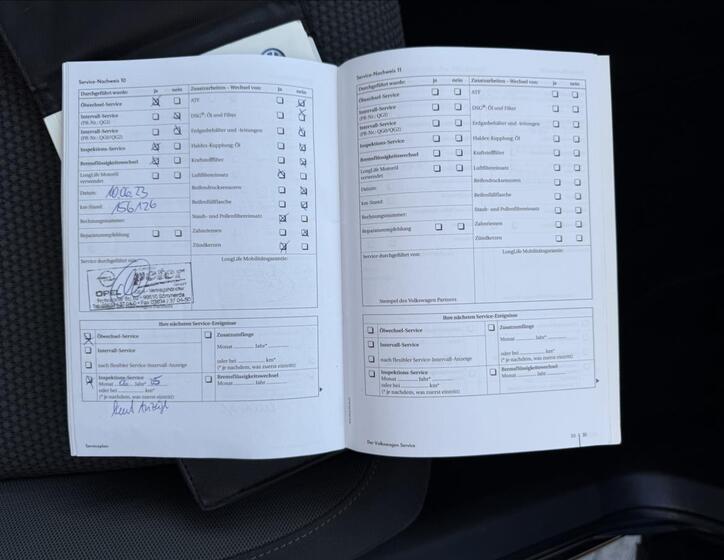 Service-Nachweis 10
Durchgeführt wurde: ja nein
Ölwechsel-Service
Intervall-Service
(PR-Nr.: QG1)
Intervall-Service
(PR-Nr.: QG0/QG2)
Inspektions-Service
Bremsflüssigkeitswechsel
LongLife Motoröl
verwendet
Datum: 10.06.23
km-Stand: 156126
Rechnungsnummer:
Reparaturempfehlung
Zusatzarbeiten - Wechsel von: ja nein
ATF
DSG®-Öl und Filter
Erdgasbehälter und -leitungen
Haldex-Kupplung Öl
Kraftstofffilter
Luftfiltereinsatz
Reifendrucksensoren
Reifenfüllflasche
Staub- und Pollenfiltereinsatz
Zahnriemen
Zündkerzen
Service durchgeführt von:
LongLife Mobilitätsgarantie:
OPEL
Ihre nächsten Service-Ereignisse
Ölwechsel-Service
Intervall-Service
nach flexibler Service-Intervall-Anzeige
Inspektions-Service
Monat Jahr 25
oder bei km*
(* je nachdem, was zuerst eintritt)
Zusatzumfänge
Monat Jahr*
oder bei km*
(* je nachdem, was zuerst eintritt)
Bremsflüssigkeitswechsel
Monat Jahr
Serviceplan
Service-Nachweis 11
Durchgeführt wurde: ja nein
Ölwechsel-Service
Intervall-Service
(PR-Nr.: QG1)
Intervall-Service
(PR-Nr.: QG0/QG2)
Inspektions-Service
Bremsflüssigkeitswechsel
LongLife Motoröl
verwendet
Datum:
km-Stand:
Rechnungsnummer:
Reparaturempfehlung
Zusatzarbeiten - Wechsel von: ja nein
ATF
DSG®-Öl und Filter
Erdgasbehälter und -leitungen
Haldex-Kupplung Öl
Kraftstofffilter
Luftfiltereinsatz
Reifendrucksensoren
Reifenfüllflasche
Staub- und Pollenfiltereinsatz
Zahnriemen
Zündkerzen
Service durchgeführt von:
LongLife Mobilitätsgarantie:
Stempel des Volkswagen Partners
Ihre nächsten Service-Ereignisse
Ölwechsel-Service
Intervall-Service
nach flexibler Service-Intervall-Anzeige
Inspektions-Service
Monat Jahr*
oder bei km*
(* je nachdem, was zuerst eintritt)
Zusatzumfänge
Monat Jahr*
oder bei km*
(* je nachdem, was zuerst eintritt)
Bremsflüssigkeitswechsel
Monat Jahr
Der Volkswagen Service